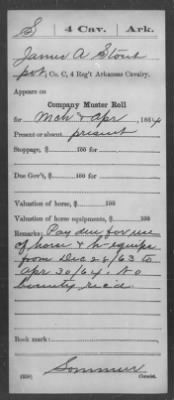 S 4 Cav. Ark.
James A Stout
pvt, Co. C, 4 Reg't Arkansas Cavalry.
Appears on
Company Muster Roll
for Mch & Apr, 1864
Present or absent present
Stoppage, $ 100 for
Due Gov't, $ 100 for
Valuation of horse, $ 100
Valuation of horse equipments, $ 100
Remarks: Pay due for use
of horse & h. equips
from Dec 28/63 to
Apr 30/64. No
bounty rec'd
Book mark:
(358)
Copyist.